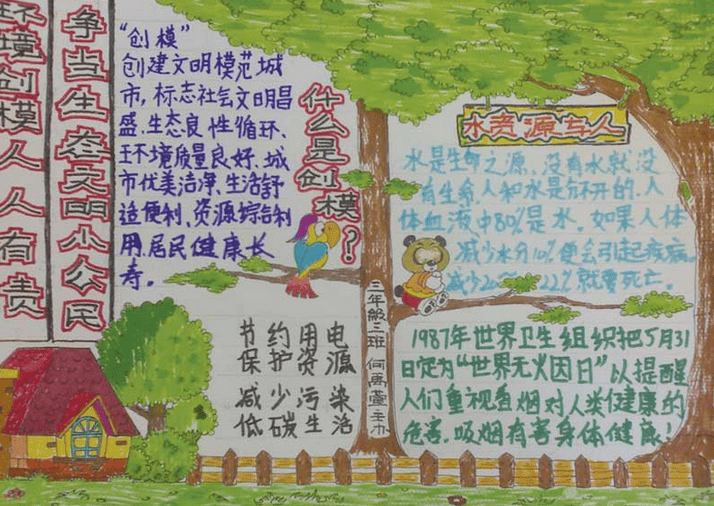 争当生态文明小公民
环境创模人人有责
“创模”
创建文明模范城
市，标志社会文明昌
盛、生态良性循环、
环境质量良好、城
市优美洁净、生活舒
适便利、资源综合利
用、居民健康长
寿。
什么是创模？
水资源与人
水是生命之源，没有水就没
有生命，人和水是分不开的.人
体血液中80%是水。如果人体
减少水分10%便会引起疾病
减少20%~22%就要死亡.
节约用电
保护资源
减少污染
低碳生活
三年級三班
1987年世界卫生组织把5月31
日定为“世界无烟日”以提醒
人们重视香烟对人类健康的
危害.吸烟有害身体健康！